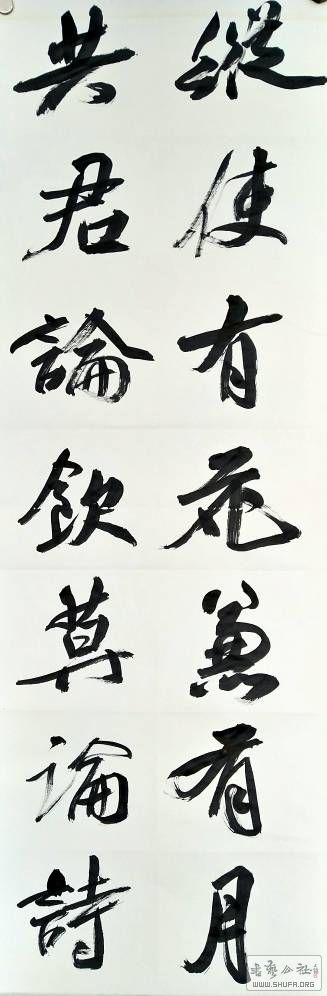 縱使有花兼有月
共君論飲莫論詩
書藝公社
WWW.SHUFA.ORG